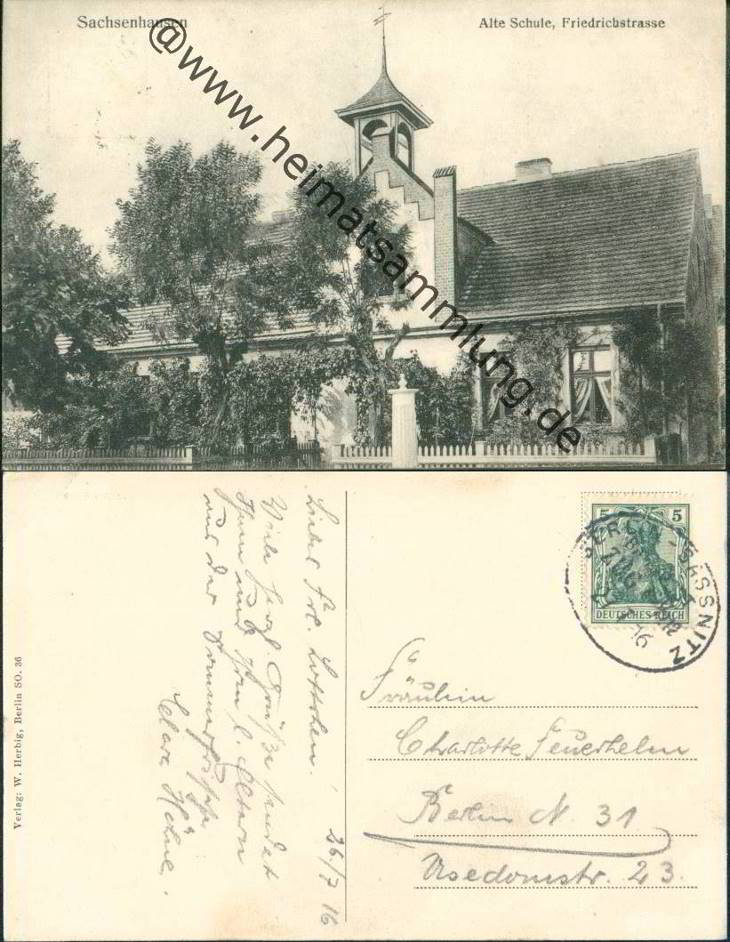 Sachsenhausen
Alte Schule, Friedrichstrasse
@www.heimatsammlung.de
5 5
DEUTSCHES REICH
SASSNITZ
ZUG
Verlag: W. Herbig, Berlin SO. 36
26/7 16
Liebes Frl. Lottchen!
Viele herzl. Grüße sendet
Ihnen und Ihren l. Eltern
aus der Sommerfrische
Clara Höhne.
Fräulein
Charlotte Feuerhelm
Berlin N. 31
Usedomstr. 23.